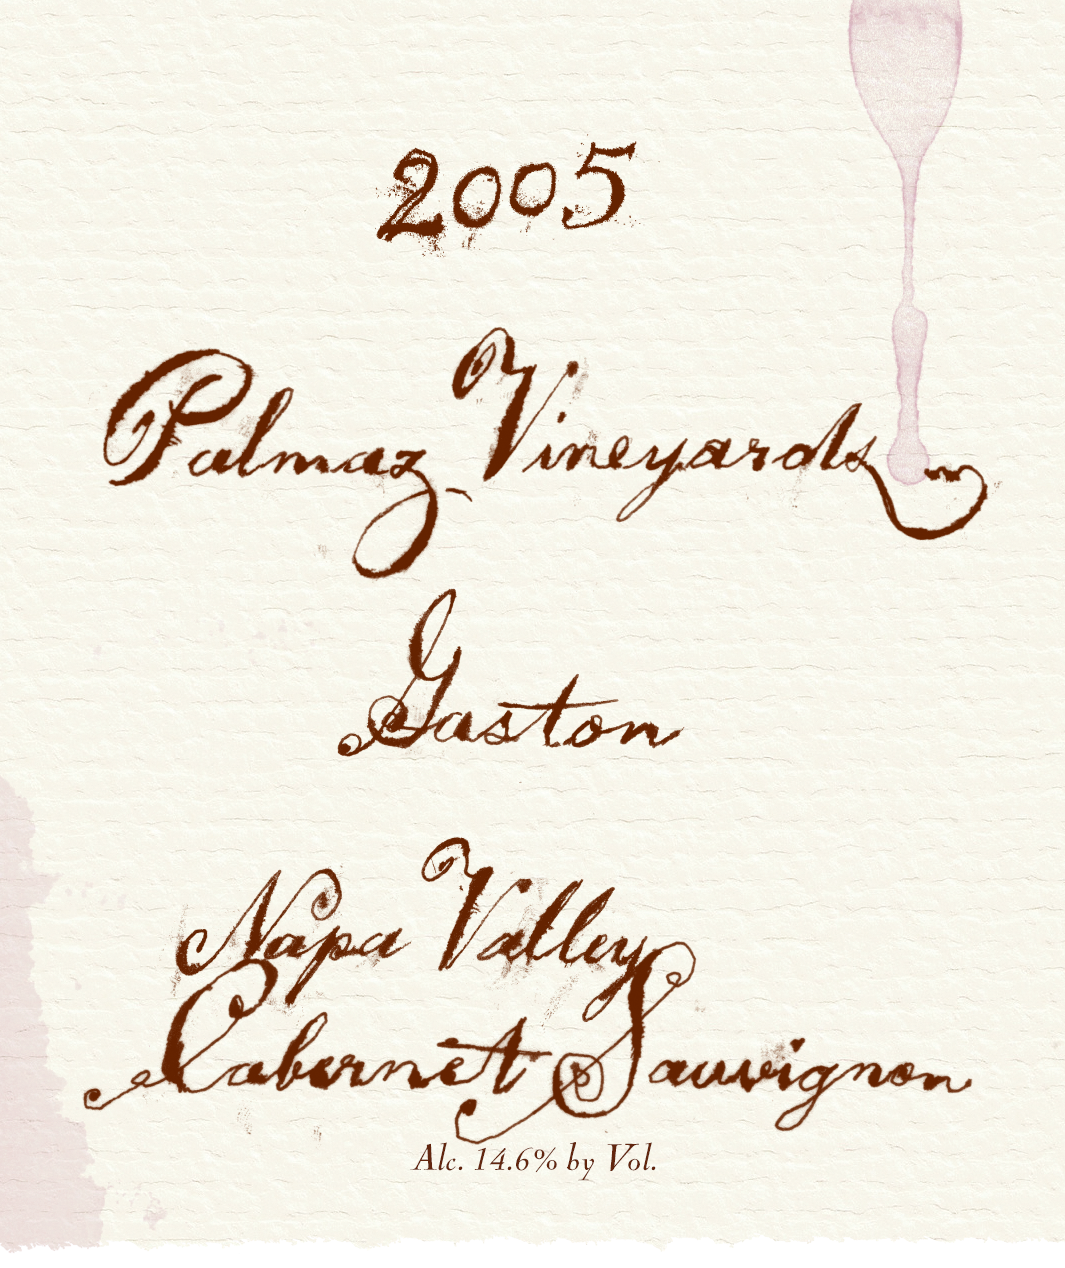 2005
Palmaz Vineyards
Gaston
Napa Valley
Cabernet Sauvignon
Alc. 14.6% by Vol.